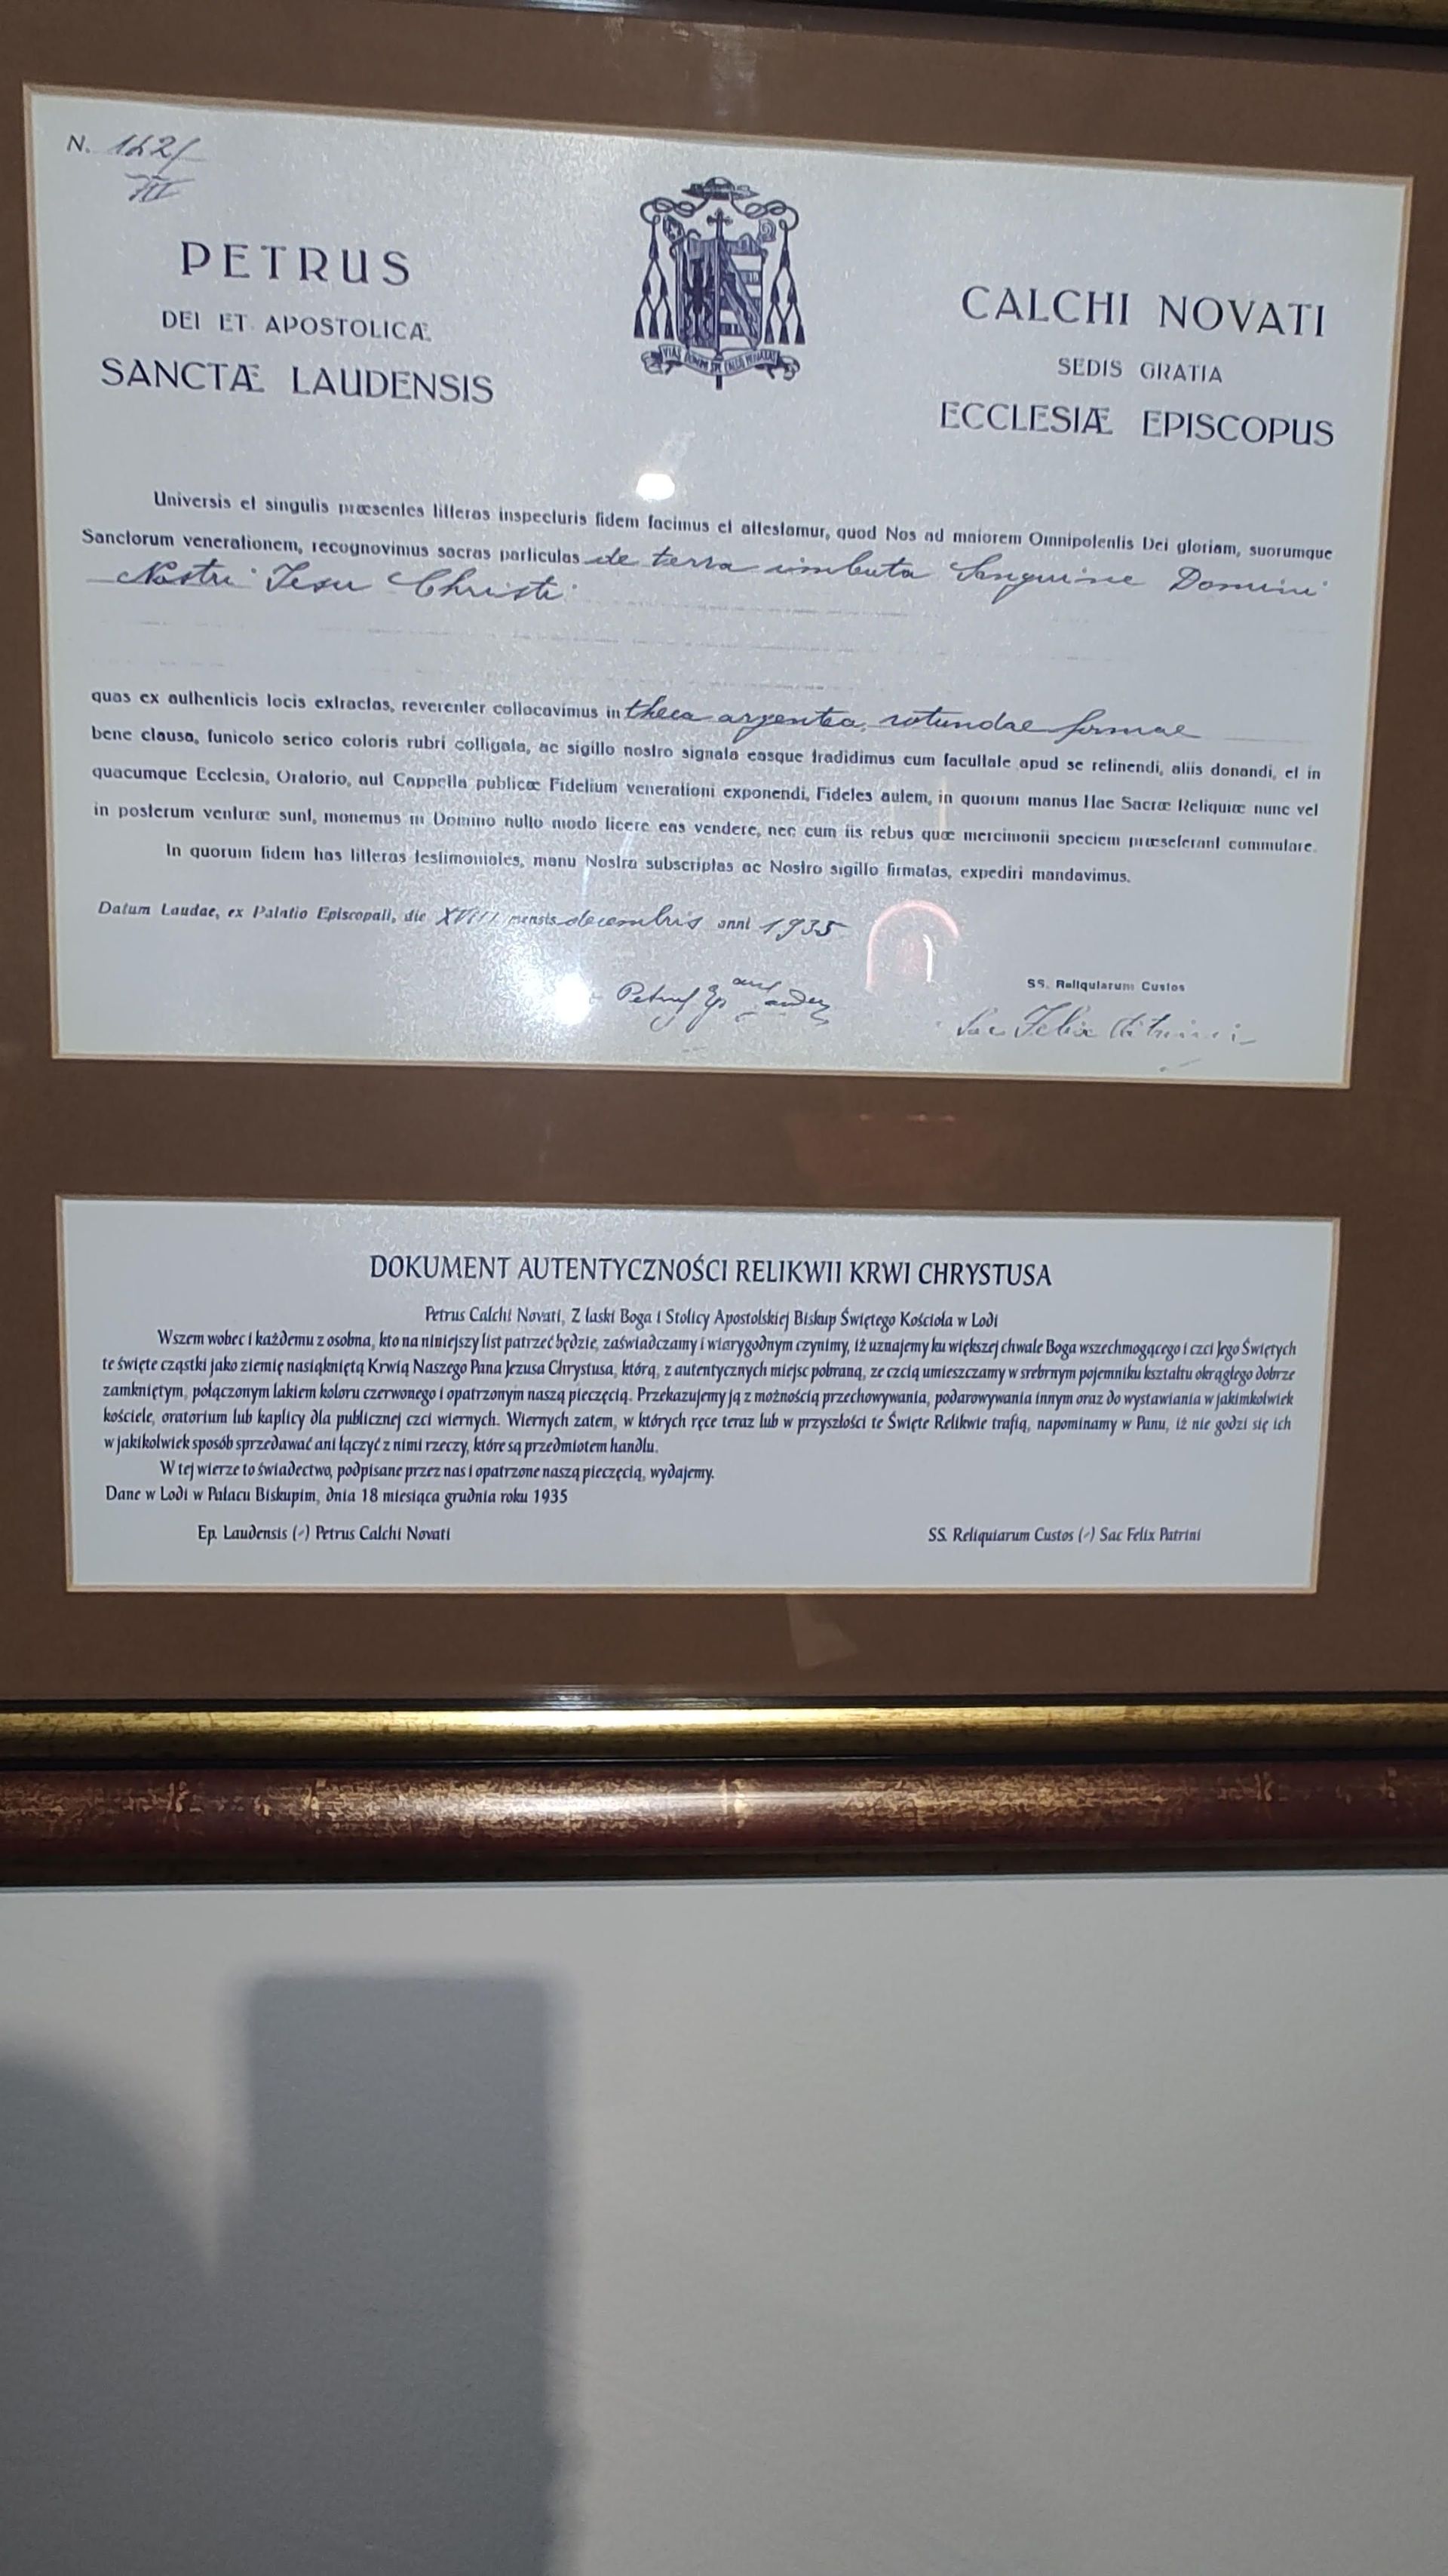 N. 142/
III
PETRUS
DEI ET APOSTOLICÆ
SANCTÆ LAUDENSIS
CALCHI NOVATI
SEDIS GRATIA
ECCLESIÆ EPISCOPUS
Universis et singulis præsentes litteras inspecturis fidem facimus et attestamur, quod Nos ad maiorem Omnipotentis Dei gloriam, suorumque
Sanctorum venerationem, recognovimus sacras particulas de terra imbuta Sanguine Domini
Nostri Iesu Christi
quas ex authenticis locis extractas, reverenter collocavimus in theca argentea, rotundae formae
bene clausa, funicolo serico coloris rubri colligata, ac sigillo nostro signata easque tradidimus cum facultate apud se retinendi, aliis donandi, et in
quacumque Ecclesia, Oratorio, aut Cappella publicæ Fidelium venerationi exponendi, Fideles autem, in quorum manus Hae Sacræ Reliquiæ nunc vel
in posterum venturæ sunt, monemus in Domino nullo modo licere eas vendere, nec cum iis rebus quæ mercimonii speciem præseferant commutare.
In quorum fidem has litteras testimoniales, manu Nostra subscriptas ac Nostro sigillo firmatas, expediri mandavimus.
Datum Laudae, ex Palatio Episcopali, die XVIII mensis decembris anni 1935
SS. Reliquiarum Custos
Petrus Ep
Sac Felix
DOKUMENT AUTENTYCZNOŚCI RELIKWII KRWI CHRYSTUSA
Petrus Calchi Novati, Z łaski Boga i Stolicy Apostolskiej Biskup Świętego Kościoła w Lodi
Wszem wobec i każdemu z osobna, kto na niniejszy list patrzeć będzie, zaświadczamy i wiarygodnym czynimy, iż uznajemy ku większej chwale Boga wszechmogącego i czci Jego Świętych
te święte cząstki jako ziemię nasiąkniętą Krwią Naszego Pana Jezusa Chrystusa, którą, z autentycznych miejsc pobraną, ze czcią umieszczamy w srebrnym pojemniku kształtu okrągłego dobrze
zamkniętym, połączonym lakiem koloru czerwonego i opatrzonym naszą pieczęcią. Przekazujemy ją z możnością przechowywania, podarowywania innym oraz do wystawiania w jakimkolwiek
kościele, oratorium lub kaplicy dla publicznej czci wiernych. Wiernych zatem, w których ręce teraz lub w przyszłości te Święte Relikwie trafią, napominamy w Panu, iż nie godzi się ich
w jakikolwiek sposób sprzedawać ani łączyć z nimi rzeczy, które są przedmiotem handlu.
W tej wierze to świadectwo, podpisane przez nas i opatrzone naszą pieczęcią, wydajemy.
Dane w Lodi w Pałacu Biskupim, dnia 18 miesiąca grudnia roku 1935
Ep. Laudensis (-) Petrus Calchi Novati
SS. Reliquiarum Custos (-) Sac Felix Patrini